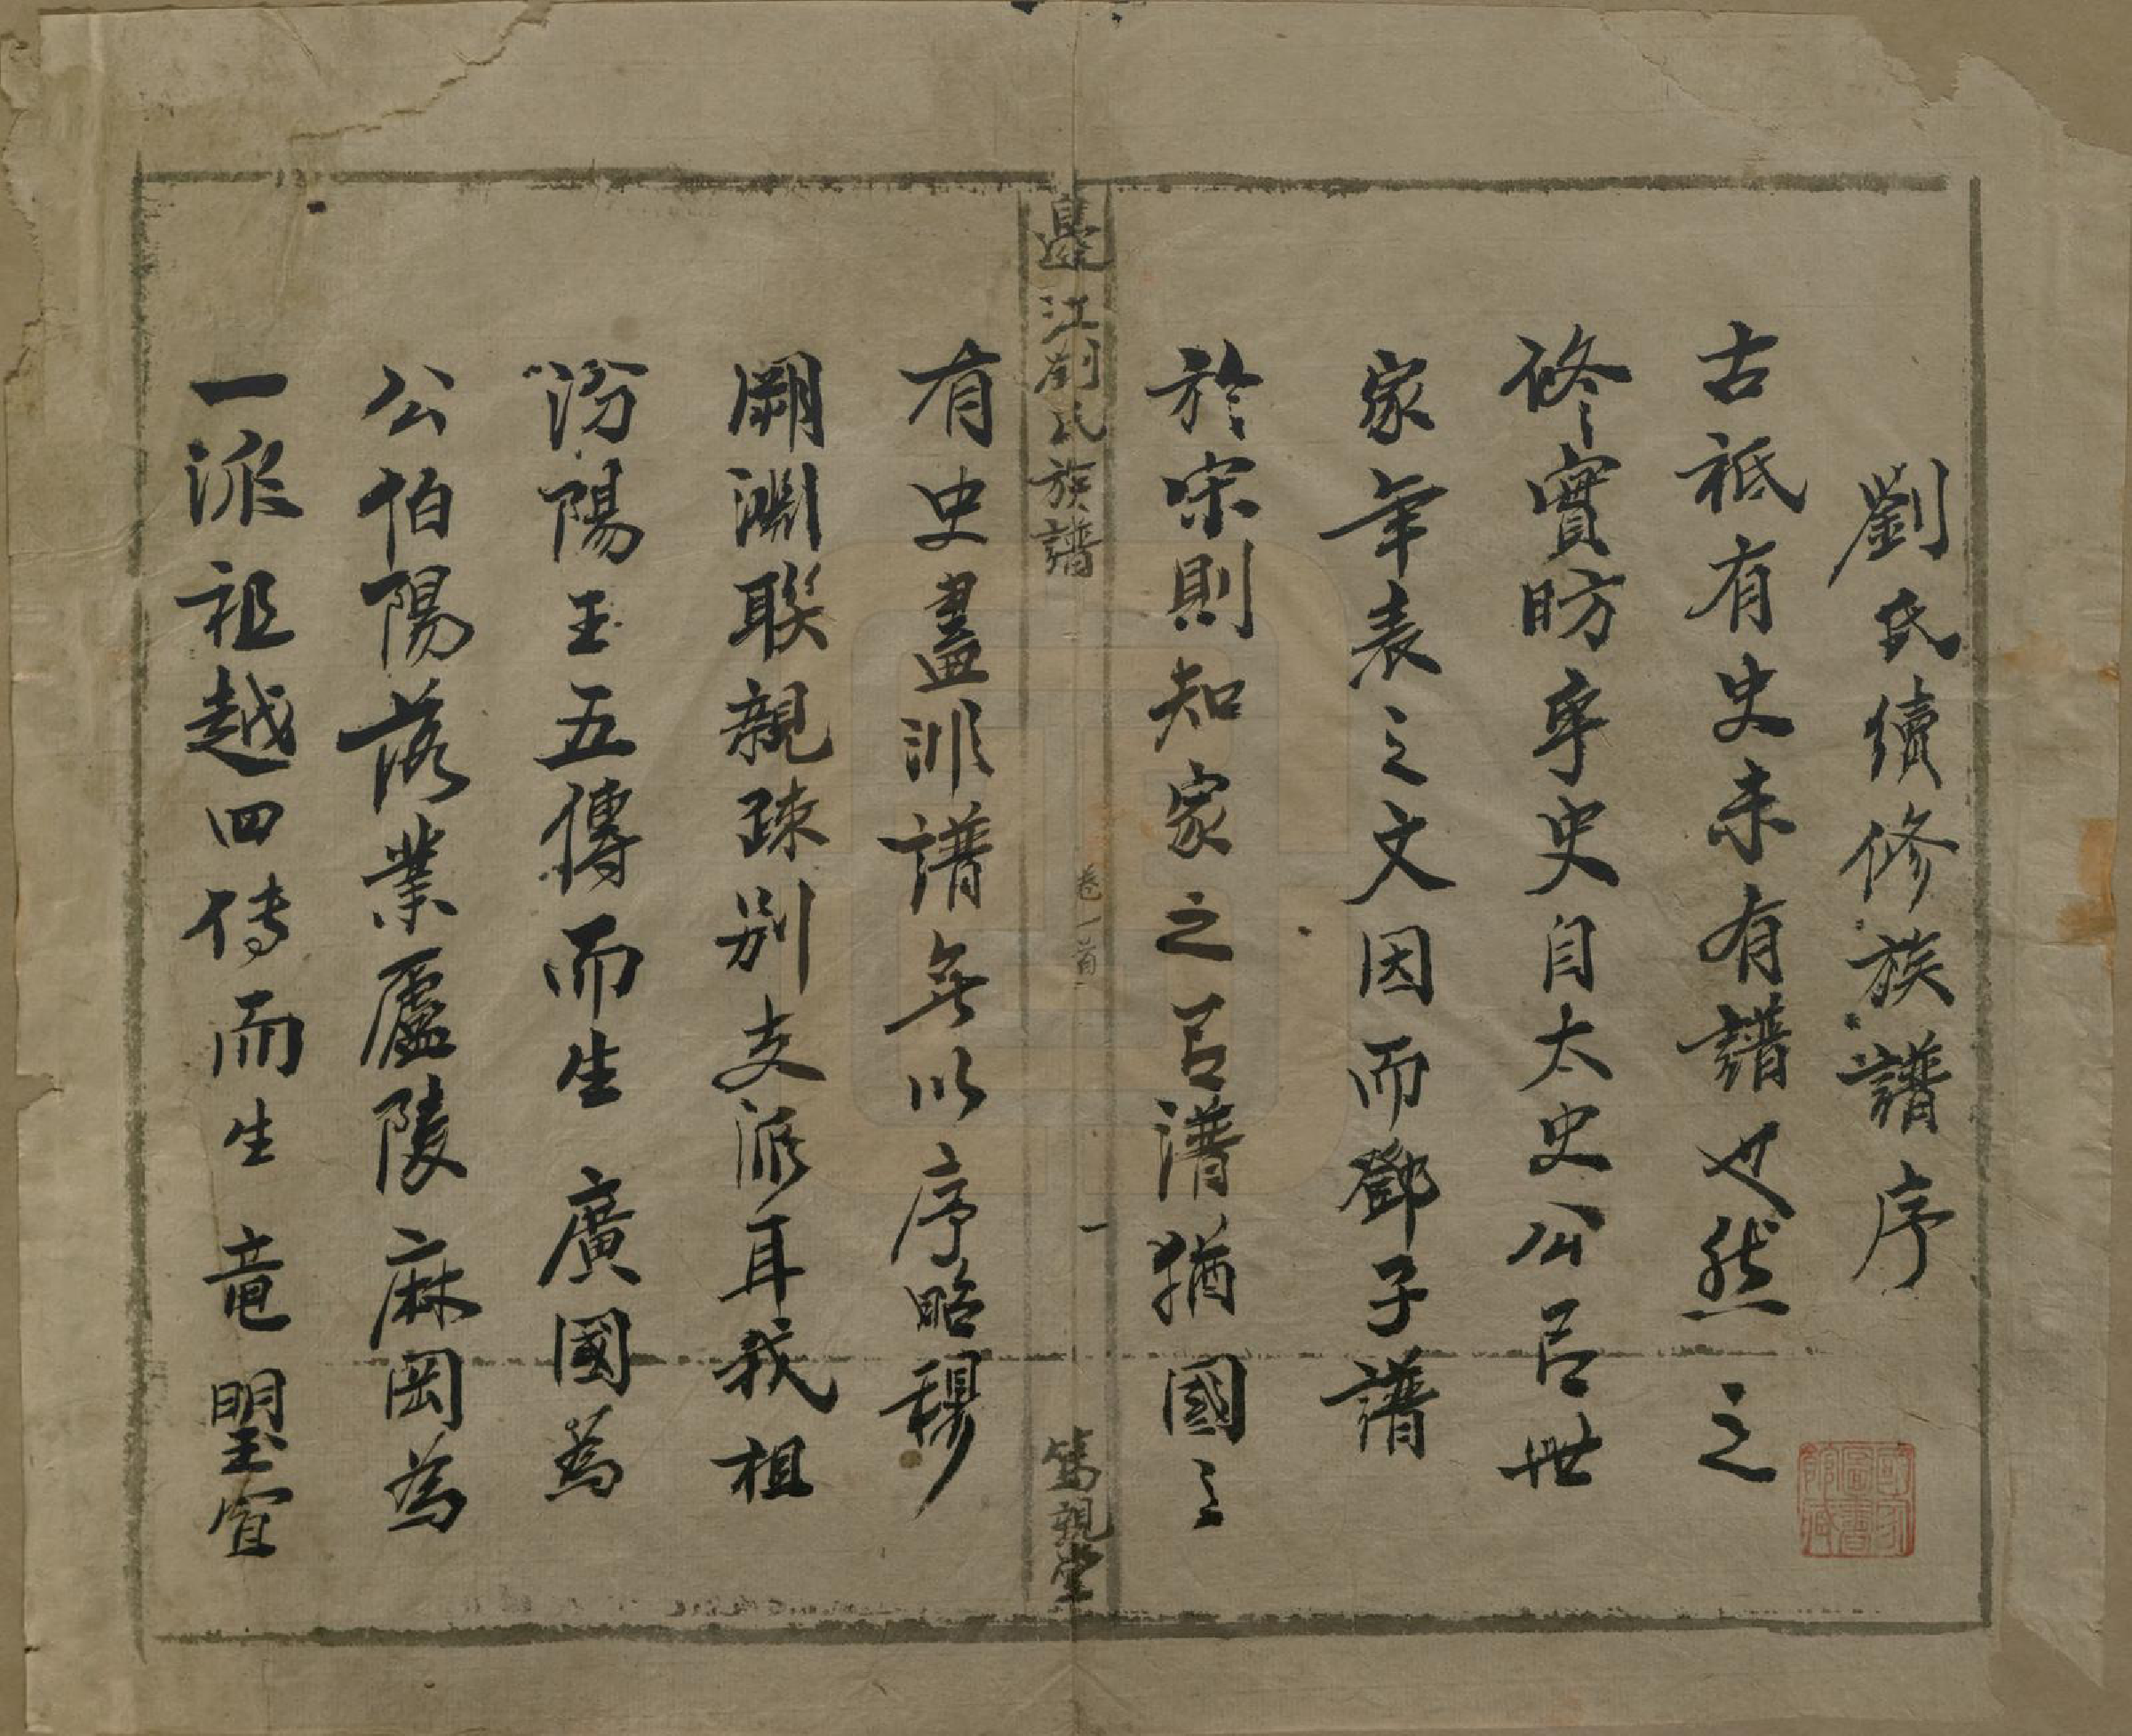 劉氏續修族譜序
古祗有史未有譜也然之
修實昉乎史自太史公呂世
家年表之文因而鄧子譜
於宋則知家之呂譜猶國之
有史盖非譜無以序昭穆
溯淵联親疎别支派耳我祖
汾陽王五傳而生廣國爲
公伯陽落業廬陵麻岡為
一派祖越四传而生竜朙宣
邊江劉氏族譜
卷一首
一
篤親堂
國家圖書館藏